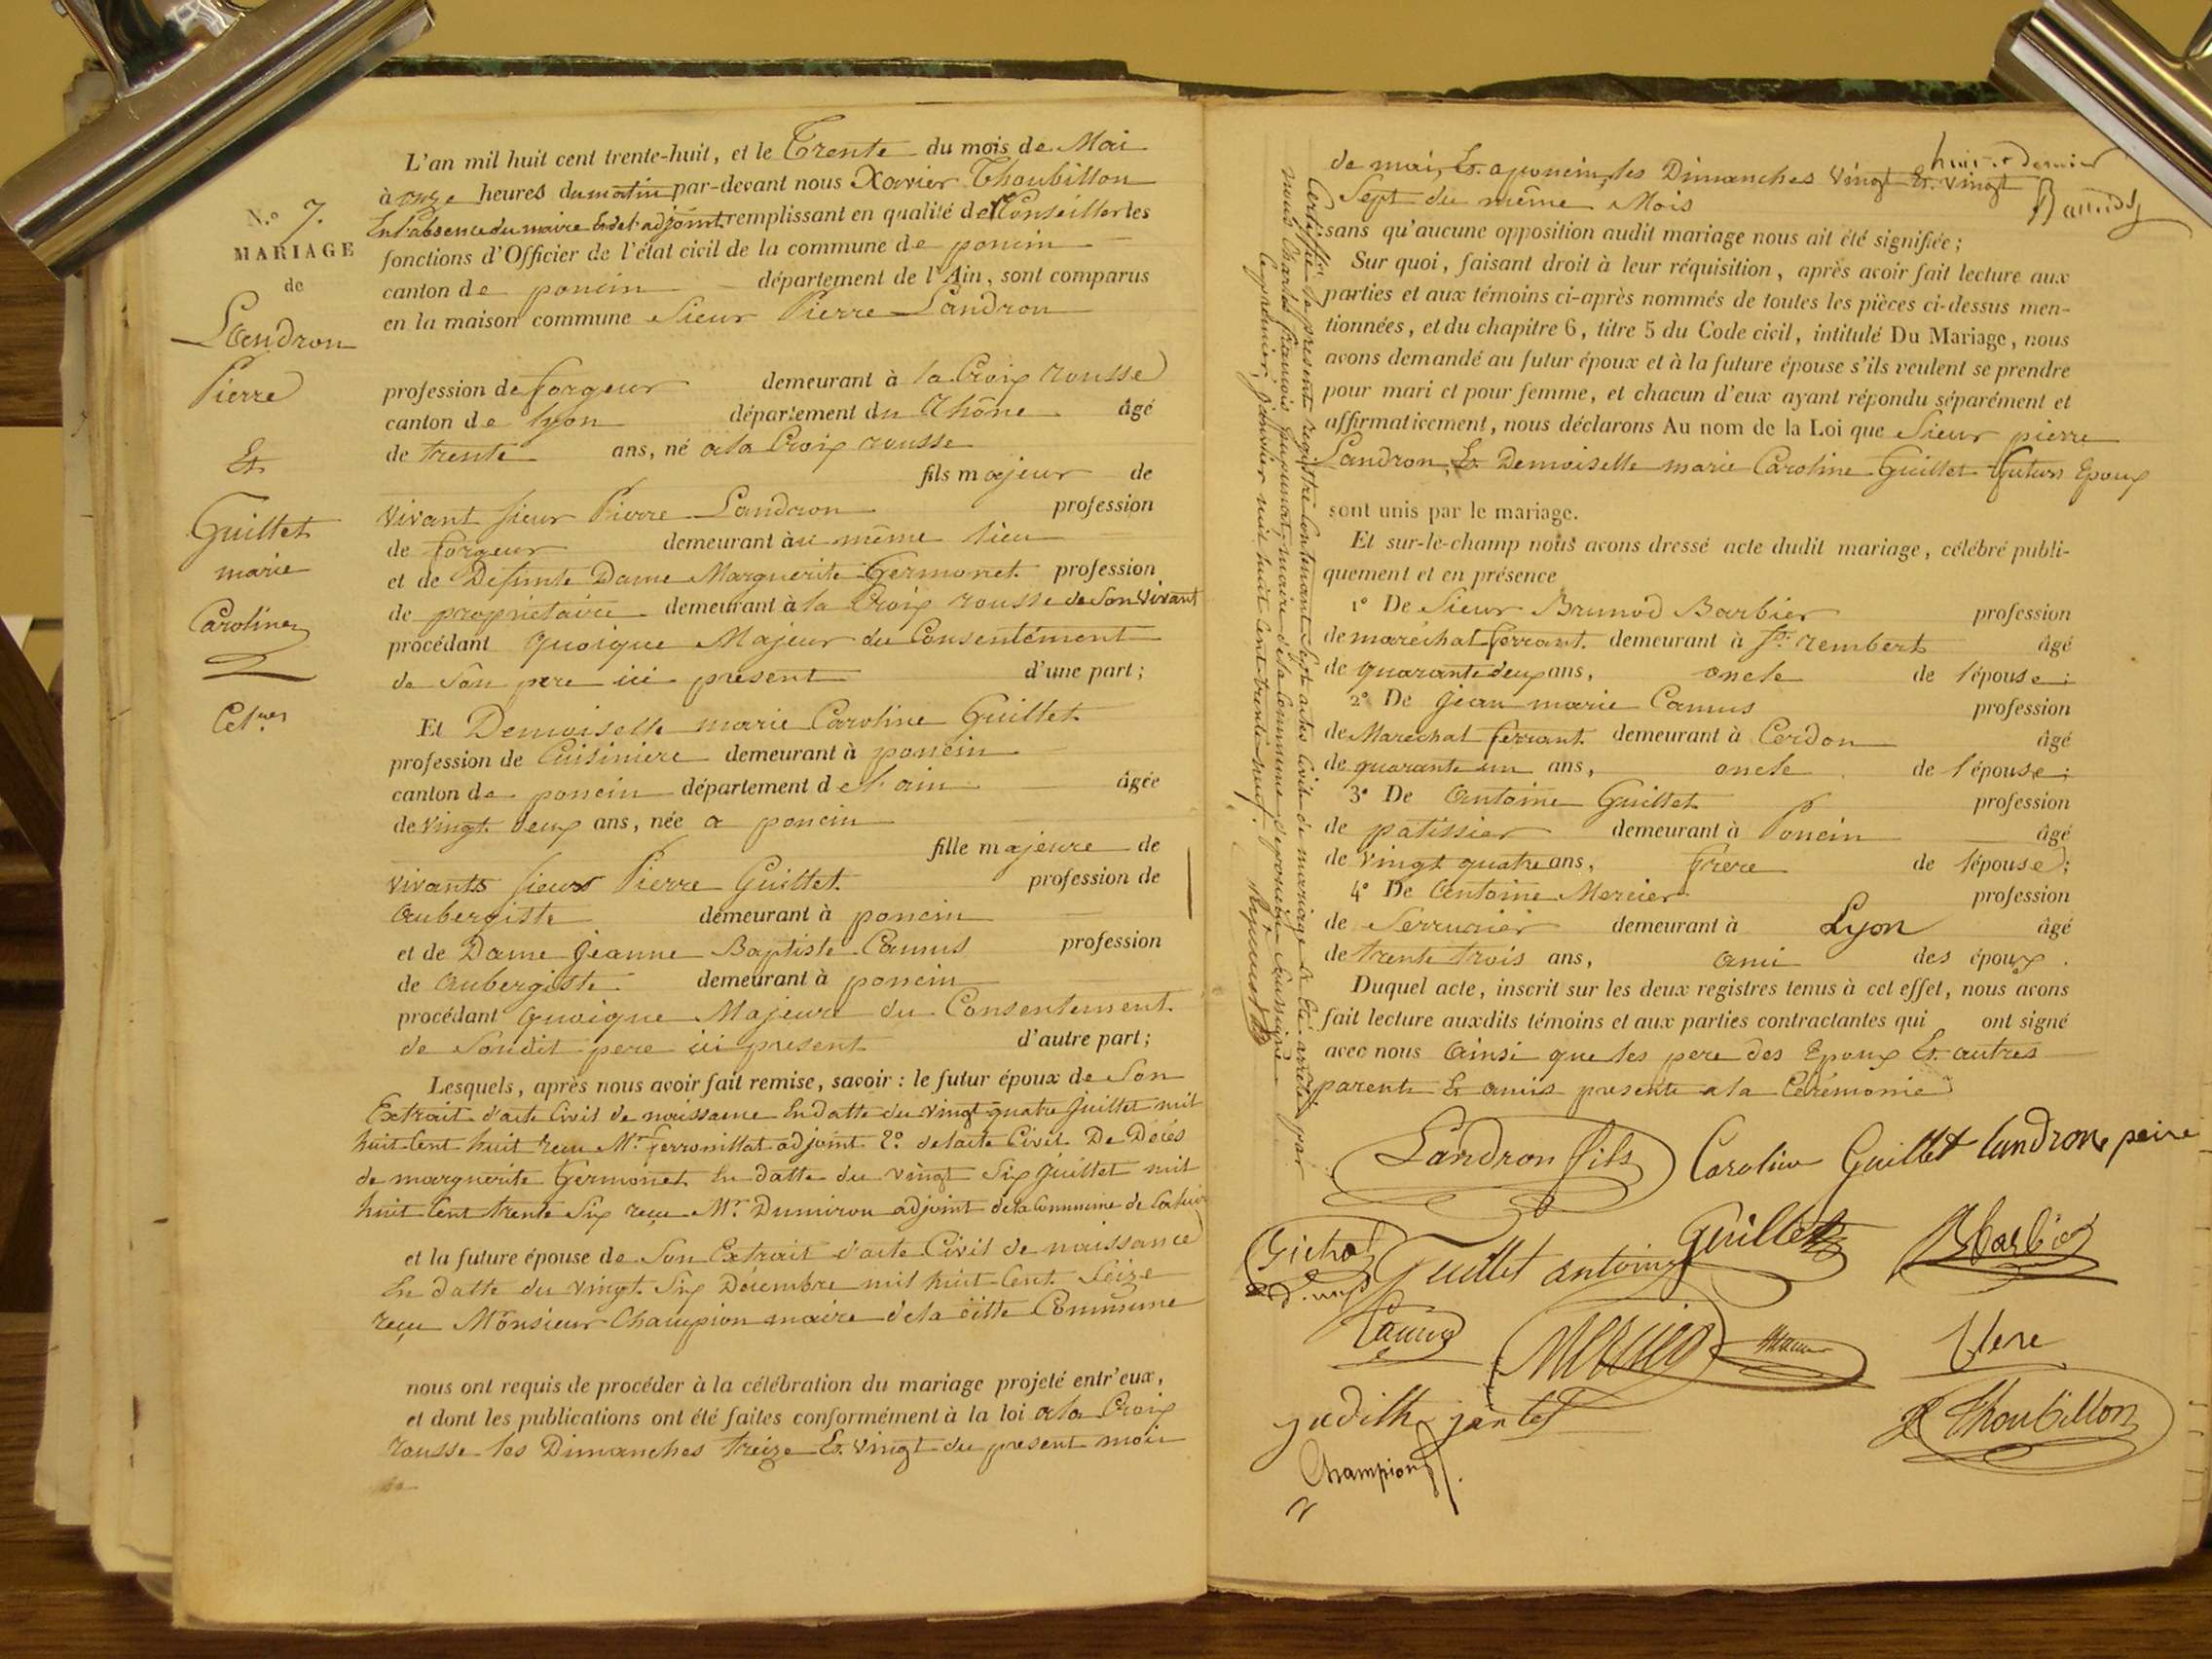 N.o 7.
MARIAGE
de
Landron
Pierre
Et
Guillet
marie
Caroline
Cel.res
L'an mil huit cent trente-huit, et le Trente du mois de Mai
à onze heures du matin par-devant nous Xavier Thoubillon
En l'absence du maire Et de l'adjoint remplissant en qualité de Conseiller les
fonctions d'Officier de l'état civil de la commune de poncin
canton de poncin département de l'Ain, sont comparus
en la maison commune Sieur Pierre Landron
profession de forgeur demeurant à la Croix rousse
canton de lyon département du Rhône âgé
de trente ans, né a la Croix rousse
fils majeur de
vivant sieur Pierre Landron profession
de forgeur demeurant au même lieu
et de Defunte Dame Marguerite Germonet profession
de propriétaire demeurant à la Croix rousse de Son Vivant
procédant quoique Majeur du Consentement
de Son pere ici présent d'une part;
Et Demoiselle marie Caroline Guillet
profession de Cuisiniere demeurant à poncin
canton de poncin département de l'ain âgée
de vingt deux ans, née a poncin
fille majeure de
vivants sieur Pierre Guillet profession de
Aubergiste demeurant à poncin
et de Dame Jeanne Baptiste Camus profession
de Aubergiste demeurant à poncin
procédant quoique Majeure du Consentement
de Soudit pere ici present d'autre part;
Lesquels, après nous avoir fait remise, savoir: le futur époux de Son
Extrait d'acte Civil de naissance En datte du vingt quatre Juillet mil
huit Cent huit recu Mr. ferronillat adjoint 2o. de l'acte Civil De Décés
de marguerite Germonet En datte du vingt Six Juillet mil
huit Cent trente Six reçu Mr. Dumiron adjoint de la Commune de
et la future épouse de Son Extrait d'acte Civil de naissance
En datte du vingt Six Décembre mil huit Cent Seize
reçu Monsieur Champion maire de la ditte Commune
nous ont requis de procéder à la célébration du mariage projeté entr'eux,
et dont les publications ont été faites conformément à la loi a la Croix
rousse les Dimanches treize Et vingt du present mois
de mai, Et a poncin, les Dimanches vingt Et vingt
huit dernier
Sept du même Mois
sans qu'aucune opposition audit mariage nous ait été signifiée;
Sur quoi, faisant droit à leur réquisition, après avoir fait lecture aux
parties et aux témoins ci-après nommés de toutes les pièces ci-dessus men-
tionnées, et du chapitre 6, titre 5 du Code civil, intitulé Du Mariage, nous
avons demandé au futur époux et à la future épouse s'ils veulent se prendre
pour mari et pour femme, et chacun d'eux ayant répondu séparément et
affirmativement, nous déclarons Au nom de la Loi que Sieur pierre
Landron, Et Demoiselle marie Caroline Guillet futurs Epoux
sont unis par le mariage.
Et sur-le-champ nous avons dressé acte dudit mariage, célébré publi-
quement et en présence
1o De Sieur Brunod Barbier profession
de maréchal ferrant demeurant à St. rembert âgé
de quarante deux ans, oncle de l'épouse;
2o De Jean marie Camus profession
de Marechal ferrant demeurant à Cerdon âgé
de quarante un ans, oncle de l'épouse;
3o De Antoine Guillet profession
de patissier demeurant à Poncin âgé
de vingt quatre ans, frere de l'épouse;
4o De Antoine Mercier profession
de Serrurier demeurant à Lyon âgé
de trente trois ans, ami des époux.
Duquel acte, inscrit sur les deux registres tenus à cet effet, nous avons
fait lecture auxdits témoins et aux parties contractantes qui ont signé
avec nous Ainsi que les pere des Epoux Et autres
parents Et amis presents a la Cérémonie
Certiffié le présent registre Contenant Sept actes Civils de mariage Et Eté arrêté par
nous Charles francois maire de la Commune de poncin Soussigné
le premier janvier mil huit Cent trente neuf.
Landron fils Caroline Guillet landron peire
Guillet antoine Guillet Barbier
Camus Mercier
judith jantet Thoubillon
Champion